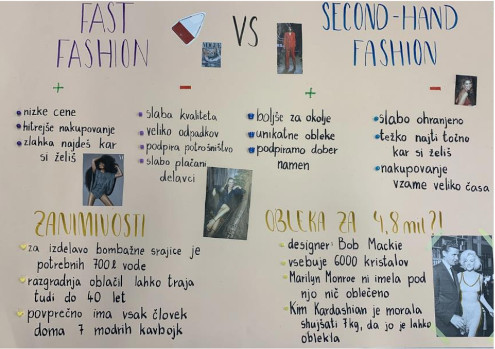 FAST
FASHION
VS
SECOND-HAND
FASHION
+
-
+
-
nizke cene
hitrejše nakupovanje
zlahka najdeš kar
si želiš
slaba kvaliteta
veliko odpadkov
podpira potrošništvo
slabo plačani
delavci
boljše za okolje
unikatne obleke
podpiramo dober
namen
slabo ohranjeno
težko najti točno
kar si želiš
nakupovanje
vzame veliko časa
ZANIMIVOSTI
za izdelavo bombažne srajice je
potrebnih 700l vode
razgradnja oblačil lahko traja
tudi do 40 let
povprečno ima vsak človek
doma 7 modrih kavbojk
OBLEKA ZA 4,8 mil?!
designer: Bob Mackie
vsebuje 6000 kristalov
Marilyn Monroe ni imela pod
njo nič oblečeno
Kim Kardashian je morala
shujšati 7kg, da jo je lahko
oblekla